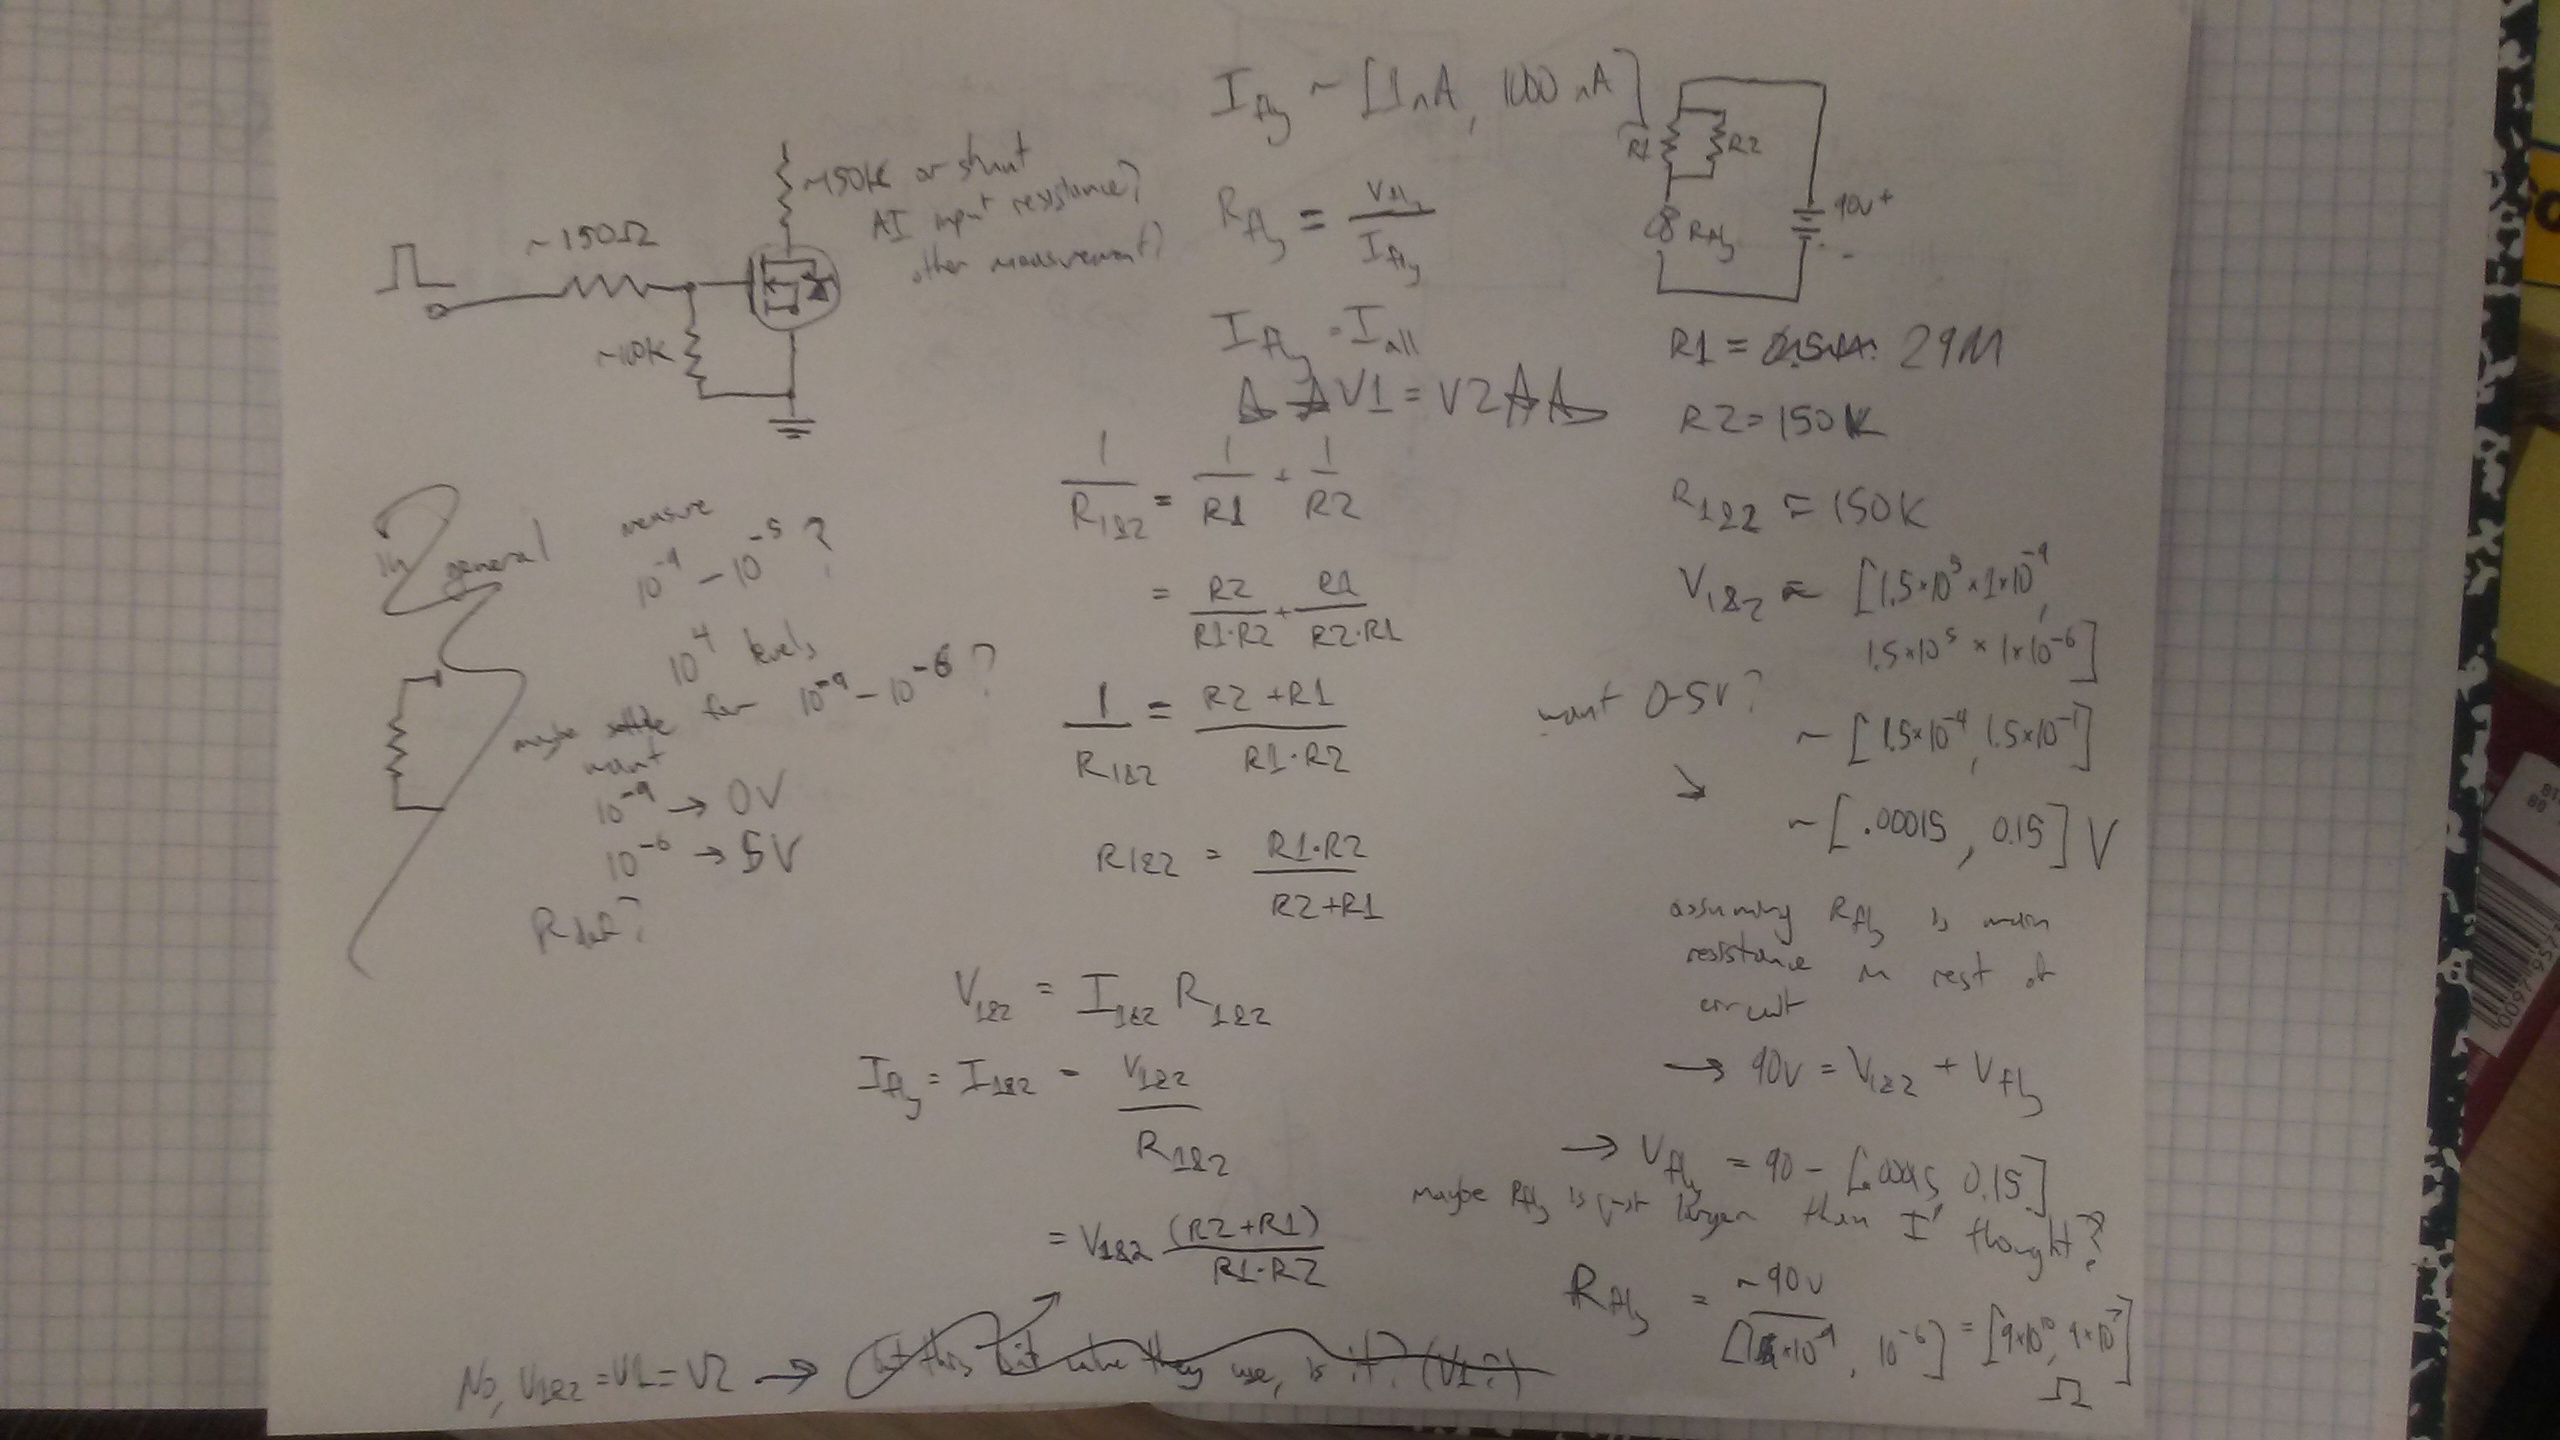 ~150K or shunt
AI input resistance?
other measurement?
~150Ω
~10K
in general
measure
10^-9 - 10^-5 ?
10^4 levels
maybe settle for 10^-9 - 10^-6 ?
want
10^-9 → 0V
10^-6 → 5V
I_fly ~ [1nA, 1000 nA]
R_fly = V_fly / I_fly
I_fly = I_all
V1 = V2
1/R_1&2 = 1/R1 + 1/R2
= R2/(R1·R2) + R1/(R2·R1)
1/R_1&2 = (R2 + R1)/(R1·R2)
R_1&2 = R1·R2/(R2+R1)
V_1&2 = I_1&2 R_1&2
I_fly = I_1&2 = V_1&2 / R_1&2
= V_1&2 (R2+R1)/(R1·R2)
No, V_1&2 = V1 = V2 →
is it? (V1?)
R1
R2
R_fly
90V +
-
R1 = 29M
R2 = 150K
R_1&2 = 150K
V_1&2 ≈ [1.5×10^5 × 1×10^-9,
1.5×10^5 × 1×10^-6]
want 0-5V?
~ [1.5×10^-4, 1.5×10^-1]
↘
~ [.00015, 0.15] V
assuming R_fly is main
resistance in rest of
circuit
→ 90V = V_1&2 + V_fly
→ V_fly = 90 - [.00015, 0.15]
maybe R_fly is just larger than I thought?
R_fly = ~90V / [1×10^-9, 10^-6] = [9×10^10, 9×10^7]
Ω